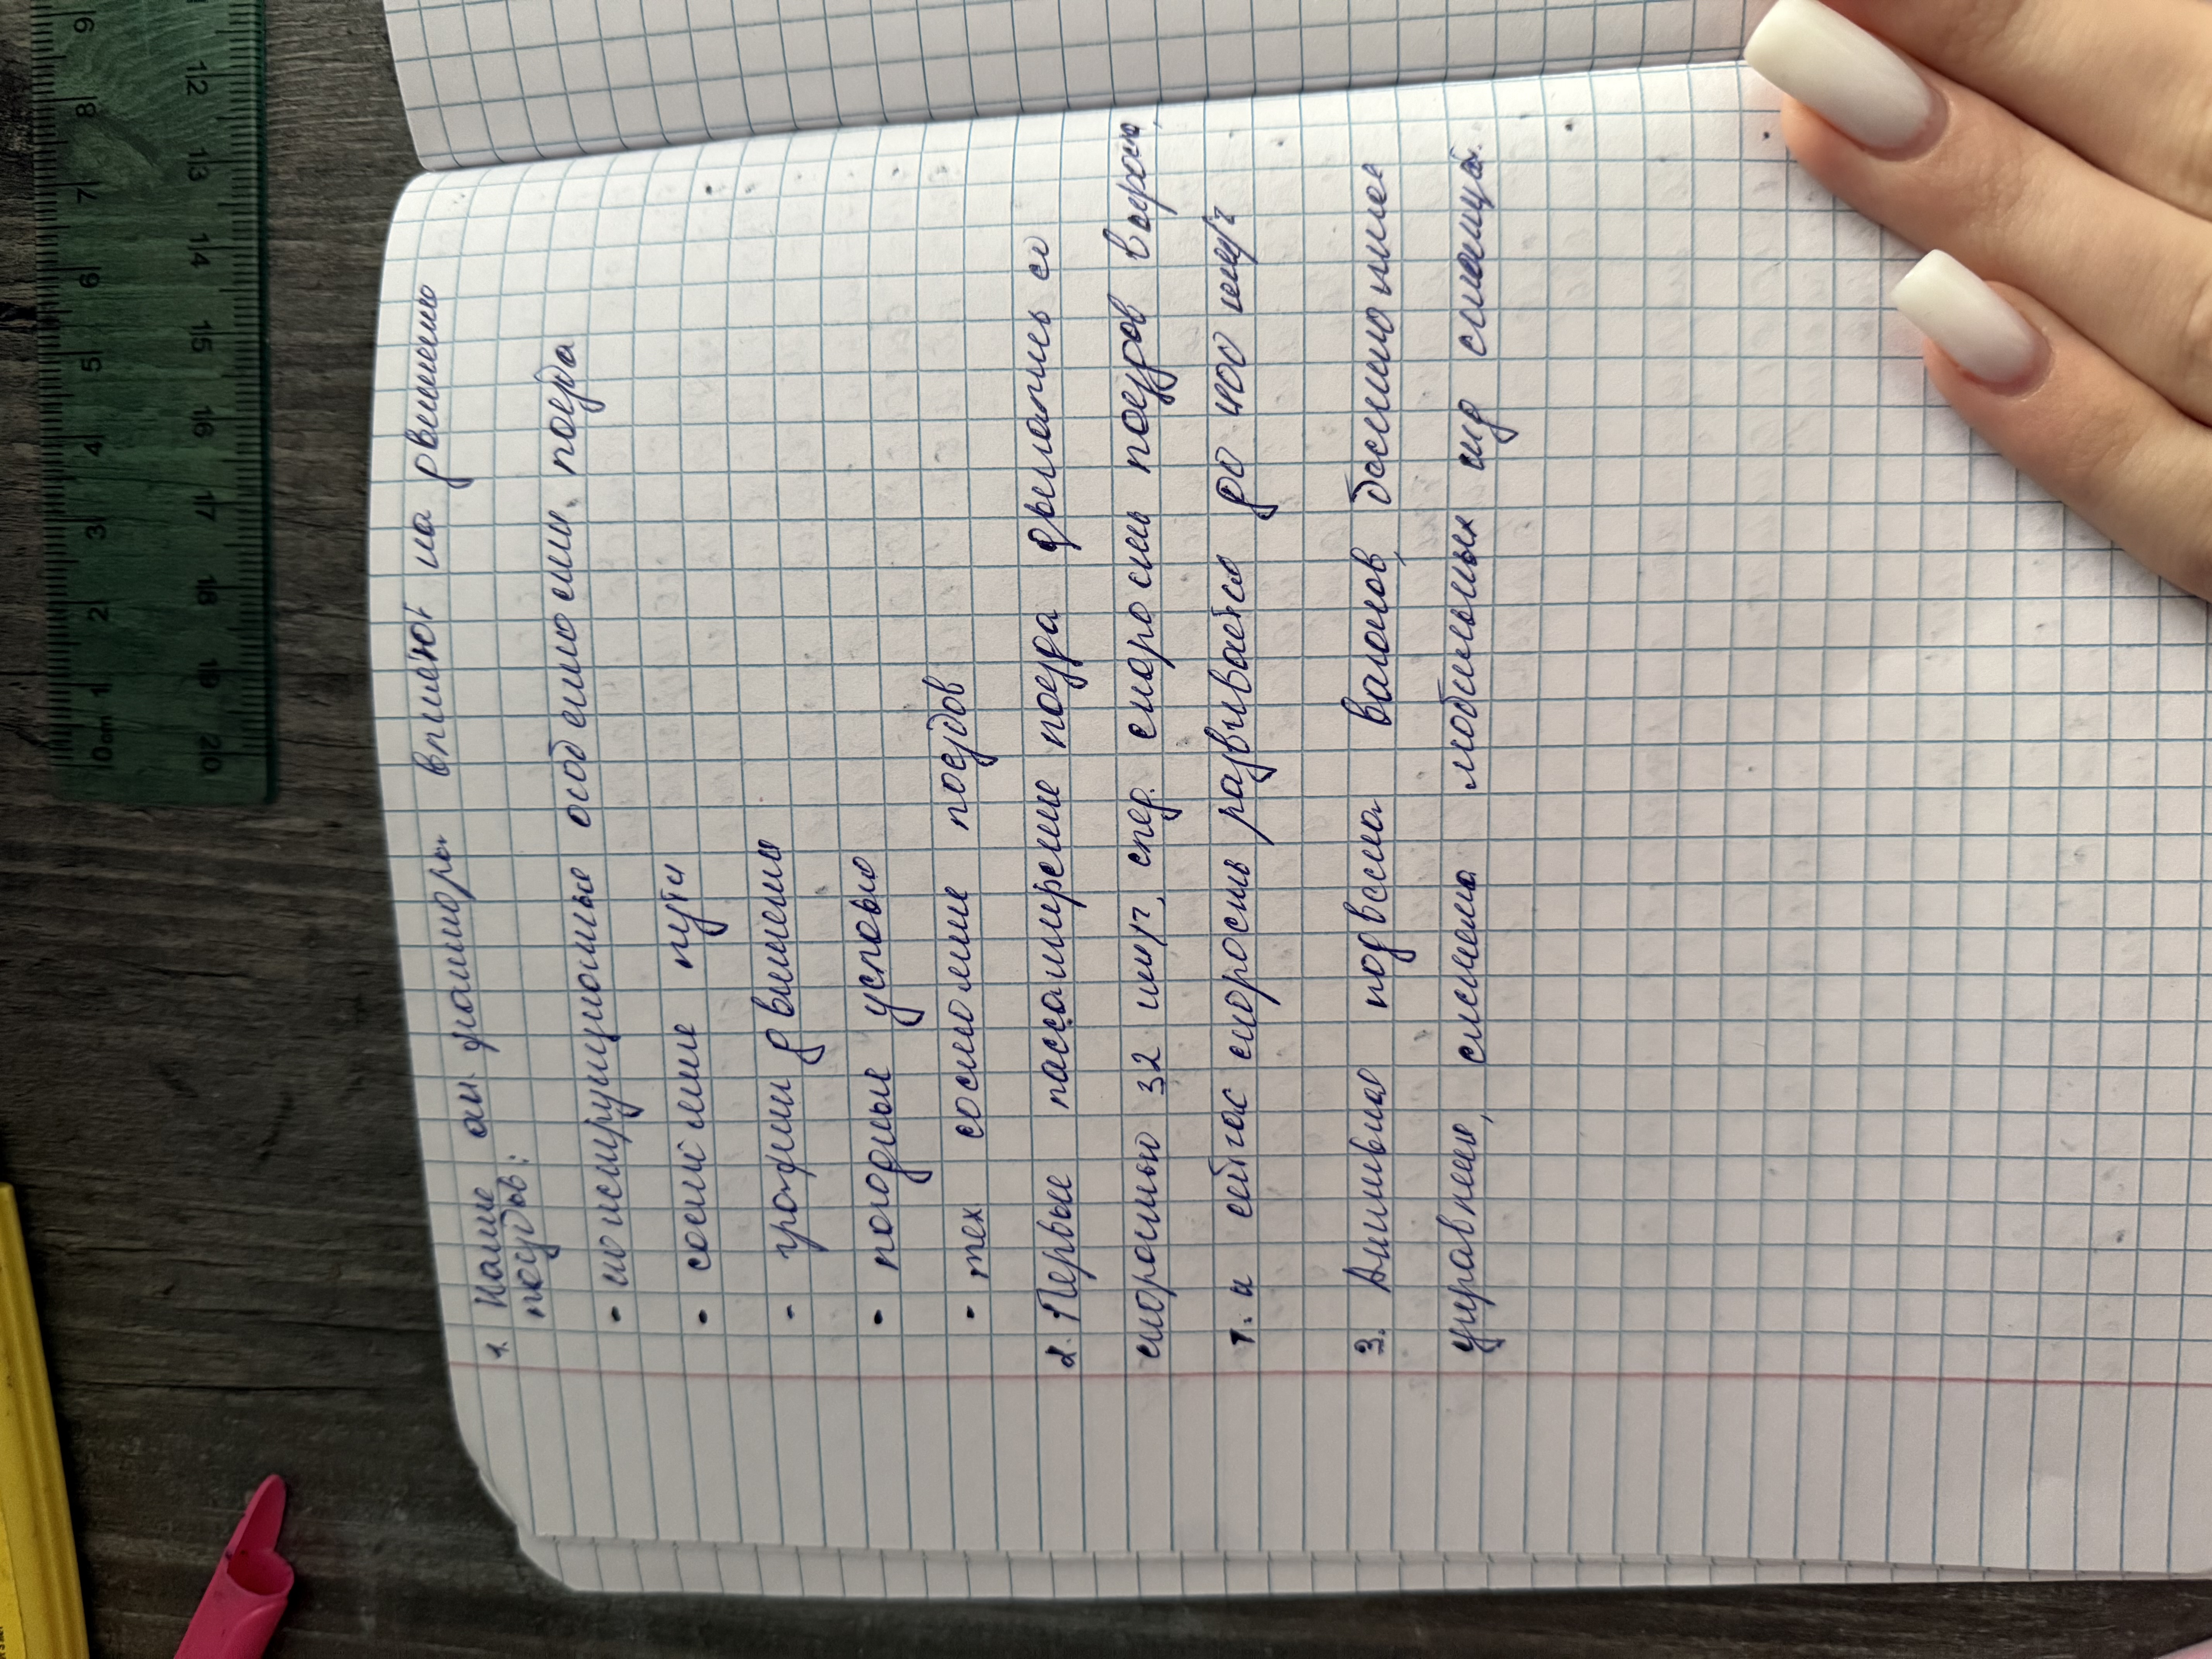 1. Какие ан. факторы влияют на движение
поездов:
- конструкционные особенности поезда
- состояние пути
- график движения
- погодные условия
- тех состояние поездов
2. Первые пассажирские поезда двигались со
скоростью 32 км/ч, след. скорость поездов возросла,
т. и сейчас скорость развивается до 400 км/ч
3. Активная подвеска вагонов,
управление, система мобильных станций.
0 cm 1 2 3 4 5 6 7 8 9
12 13 14 15 16 17 18 19 20